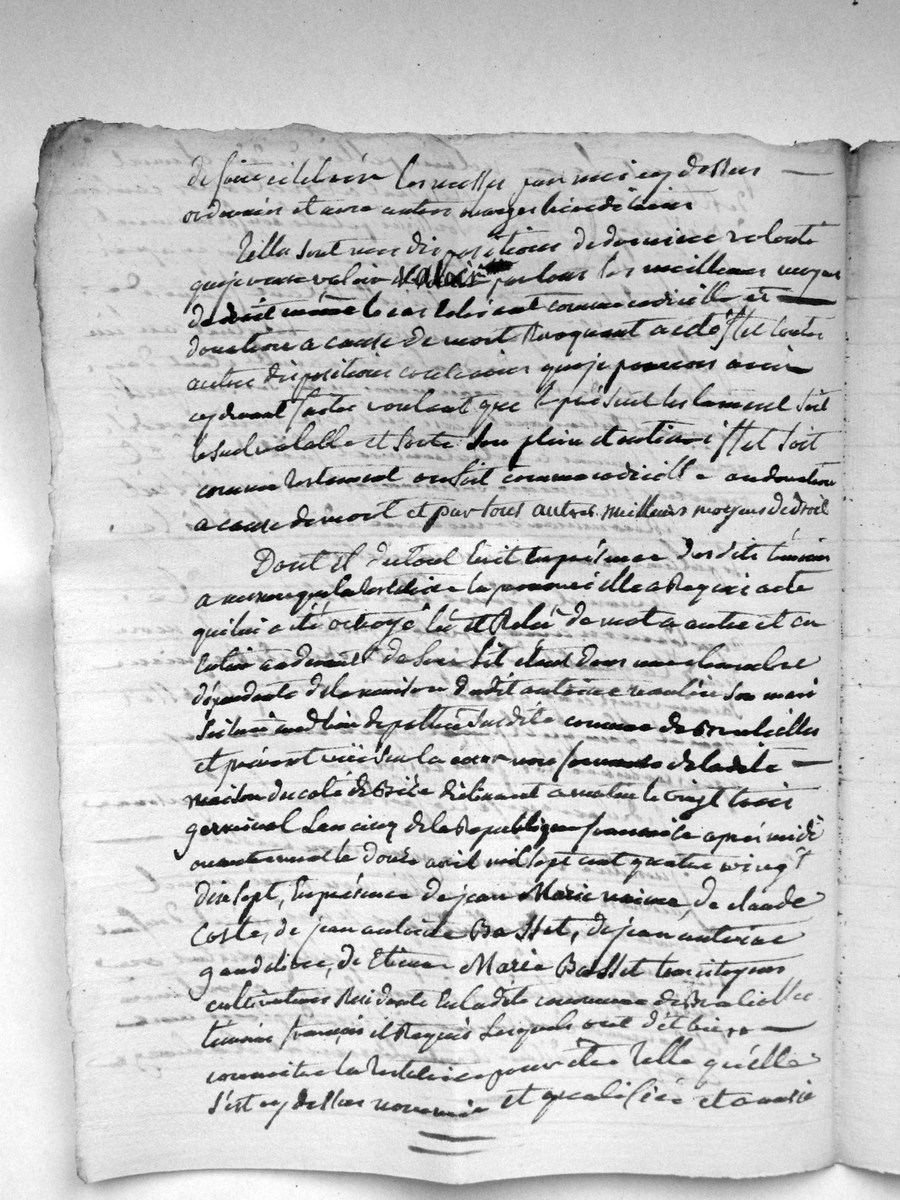 de faire célébrer les messes par moi cy dessus
ordonnées et avec autres charges héréditaires
Telles sont mes dispositions de derniere volonté
que je veux valoir par tous les meilleurs moyens
de droit même le cas échéant comme codicille et
donation a cause de mort Revoquant a cet effet toutes
autres dispositions contraires que je pourrois avoir
cy devant faites voulant que le présent testament soit
le seul valable et sorte son plein et entier effet soit
comme testament ou soit comme codicille ou donation
a cause de mort et par tous autres meilleurs moyens de droit
Dont et du tout lu et en présence desdits témoins
a mesure que la testatrice la prononcé elle a Requis acte
qui lui a été octroyé lû et Relû de mot a autre et en
entier au devant de son lit étant dans une chambre
dépendante de la maison dudit antoine son mari
scituée au lieu de susdite commune de
et prenant vuë sur la cour de ladite
maison du coté de bise du matin le vingt trois
germinal L'an cinq de la Republique francaise aprés midi
ou autrement le douze avril mil sept cent quatre vingt
dix sept, En présence de jean Marie de claude
Coste, de jean antoine Basset, de jean antoine
de Etienne Marie Basset tous citoyens
cultivateurs Residants En ladite commune de
témoins français et Requis Lesquels ont dit bien
connoitre la testatrice pour être telle qu'elle
s'est cy dessus nommée et qualifiée et a